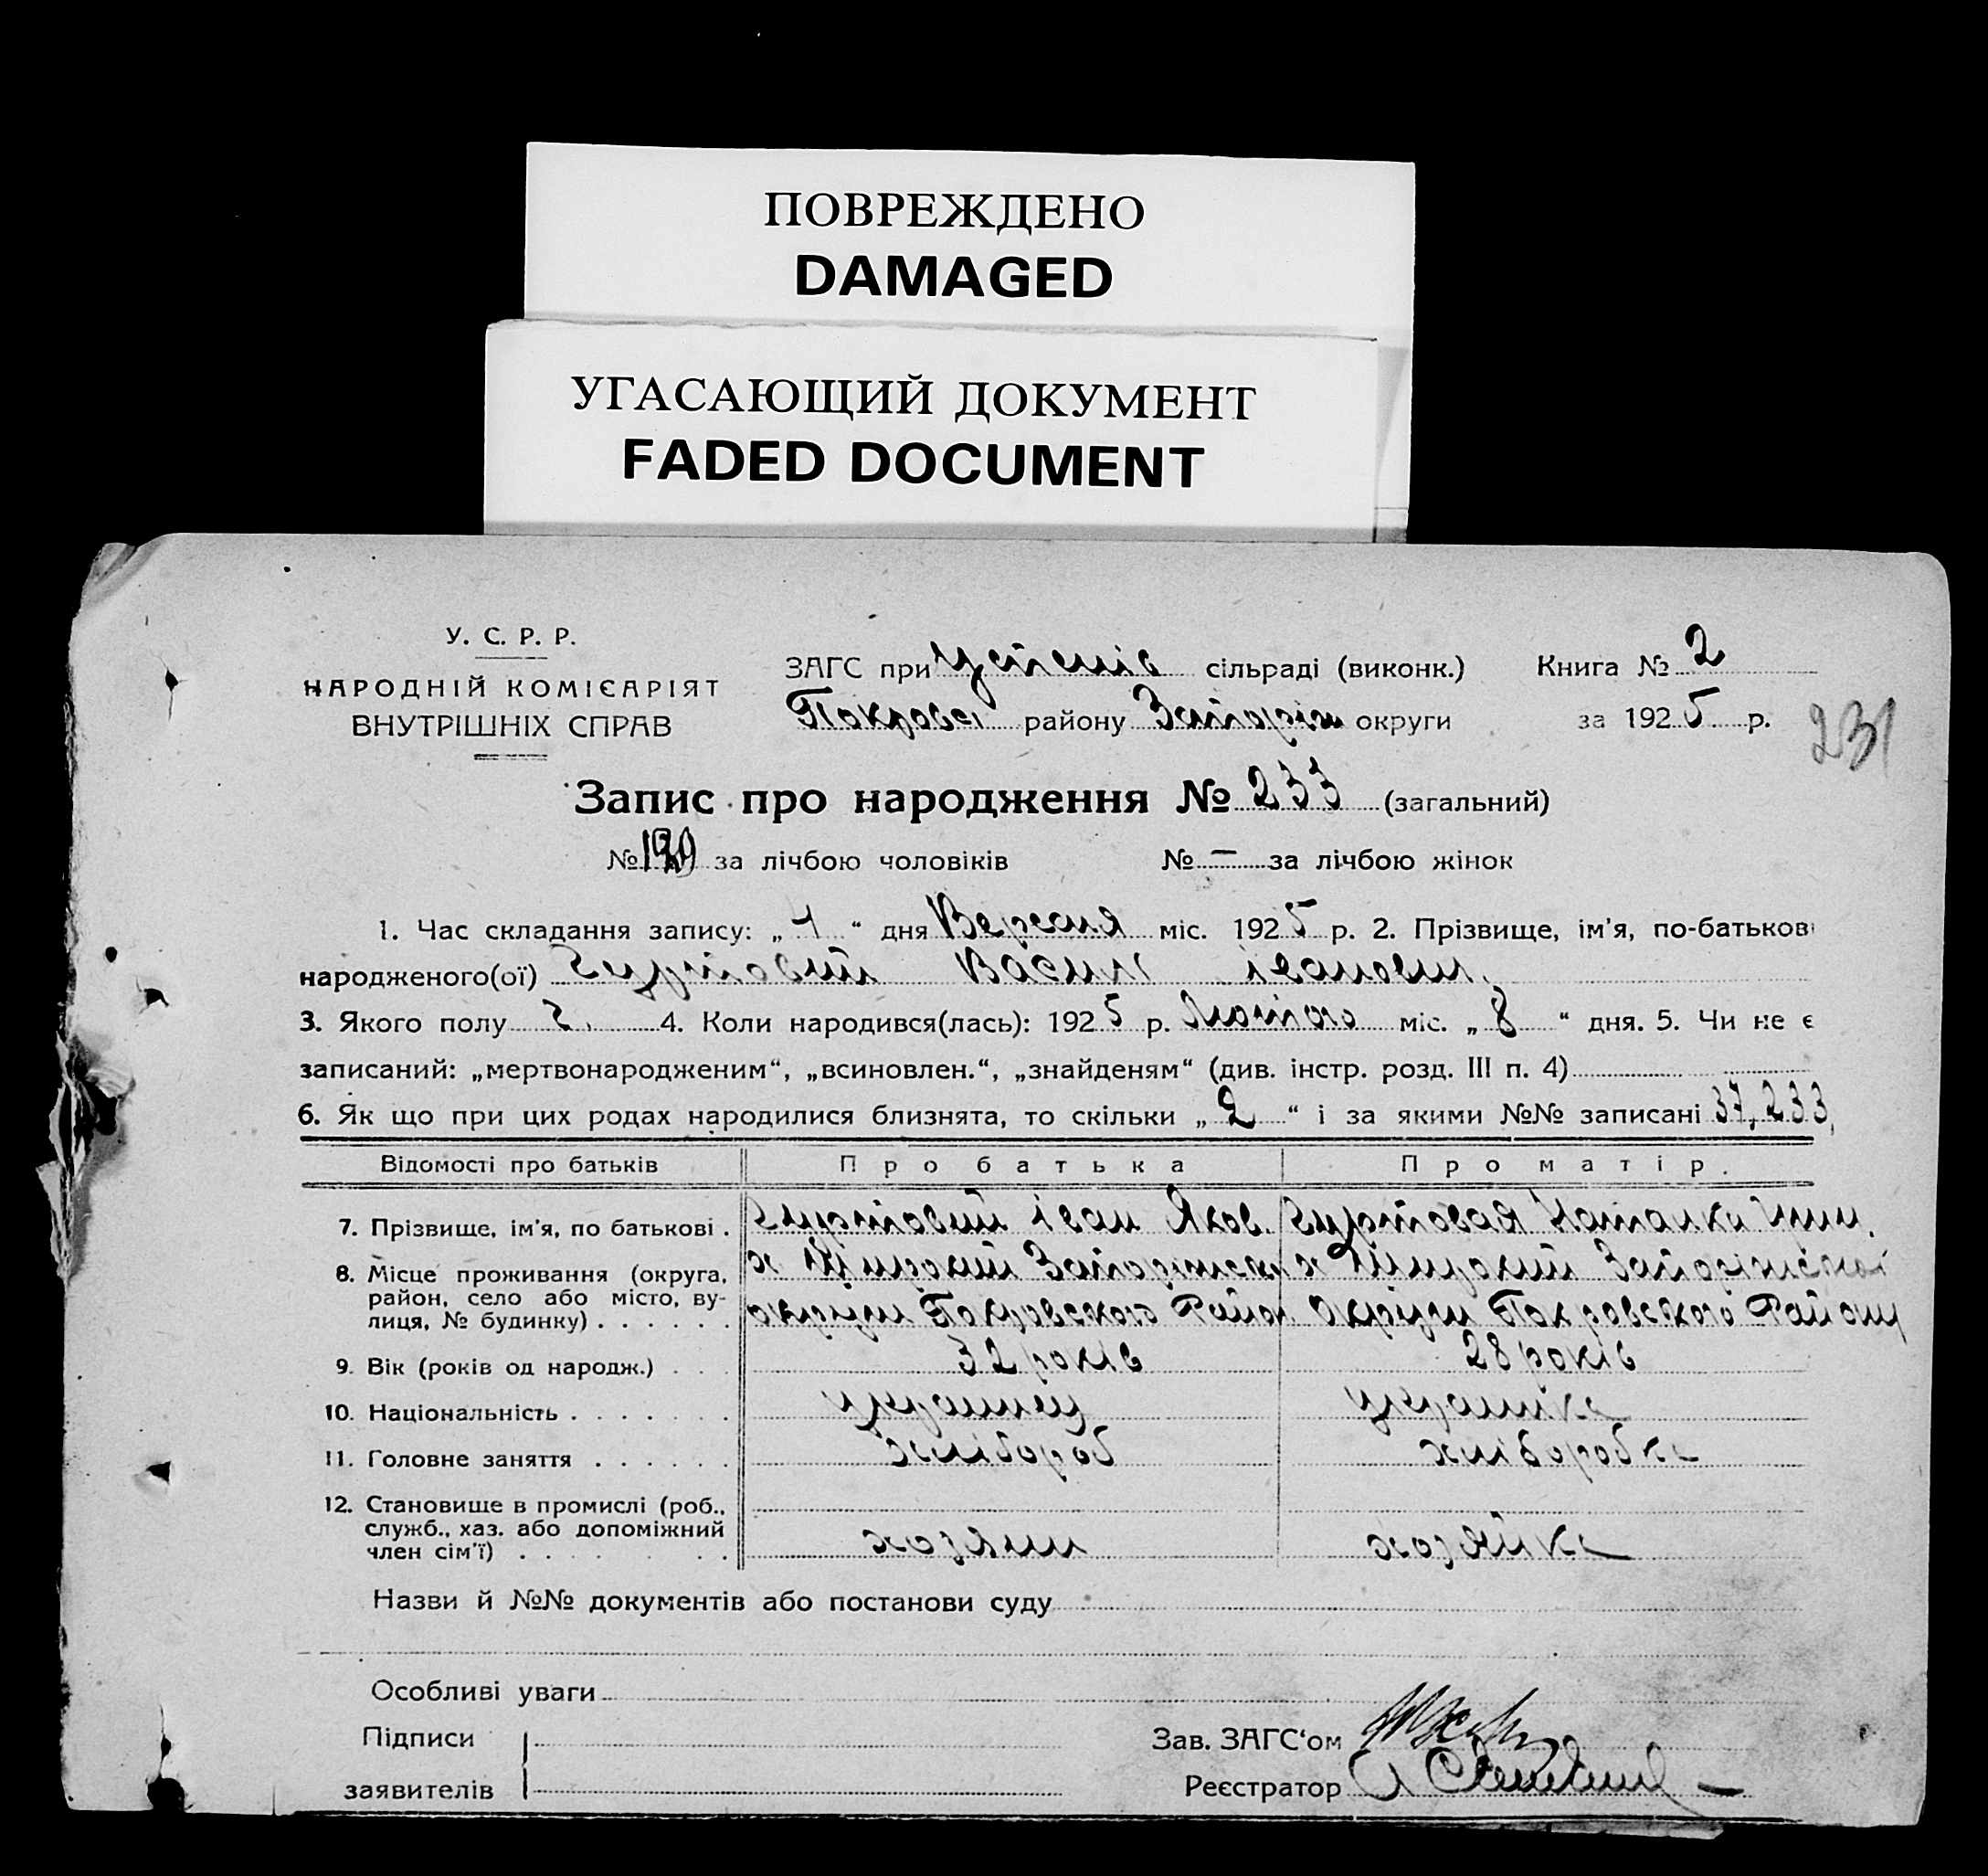 ПОВРЕЖДЕНО
DAMAGED
УГАСАЮЩИЙ ДОКУМЕНТ
FADED DOCUMENT
У. С. Р. Р.
НАРОДНІЙ КОМІСАРІЯТ
ВНУТРІШНІХ СПРАВ
ЗАГС при сільраді (виконк.) Книга № 2
Покровсь району Запоріж округи за 1925 р.
231
Запис про народження № 233 (загальний)
№ за лічбою чоловіків № — за лічбою жінок
1. Час складання запису: „ 1 “ дня Вересня міс. 1925 р. 2. Прізвище, ім'я, по-батькові
народженого(ої) Гуртовий Василь Іванович.
3. Якого полу ч. 4. Коли народився(лась): 1925 р. Лютого міс. „ 8 “ дня. 5. Чи не є
записаний: „мертвонародженим“, „всиновлен.“, „знайденям“ (див. інстр. розд. III п. 4)
6. Як що при цих родах народилися близнята, то скільки „ 2 “ і за якими №№ записані 37, 233,
Відомості про батьків Про батька Про матір.
7. Прізвище, ім'я, по батькові . Гуртовий Іван Яков. Гуртовая Наталка
8. Місце проживання (округа, район, село або місто, вулиця, № будинку) . . . . . .
х Широкий х Широкий Запоріжської
округи Покровського Район округи Покровського Району
9. Вік (років од народж.) . . . 32 років 28 років
10. Національність . . . . . . . українец українка
11. Головне заняття . . . . . . хлібороб хліборобка
12. Становище в промислі (роб., служб., хаз. або допоміжний член сім'ї) . . . . . . . хозяин хозяйка
Назви й №№ документів або постанови суду
Особливі уваги
Підписи
заявителів
Зав. ЗАГС‘ом
Реєстратор